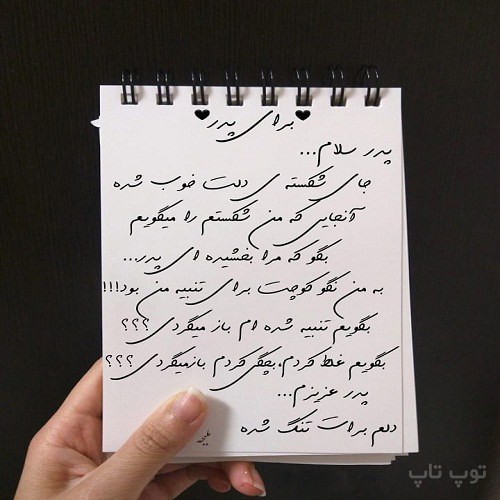 برای پدر
پدر سلام...
جای شکسته ی دلت خوب شده
آنجایی که من شکستم را میگویم
بگو که مرا بخشیده ای پدر...
به من نگو کوچت برای تنبیه من بود!!!
بگویم تنبیه شده ام باز میگردی؟؟؟
بگویم غلط کردم،بچگی کردم بازمیگردی؟؟؟
پدر عزیزم...
دلم برات تنگ شده
توپ تاپ